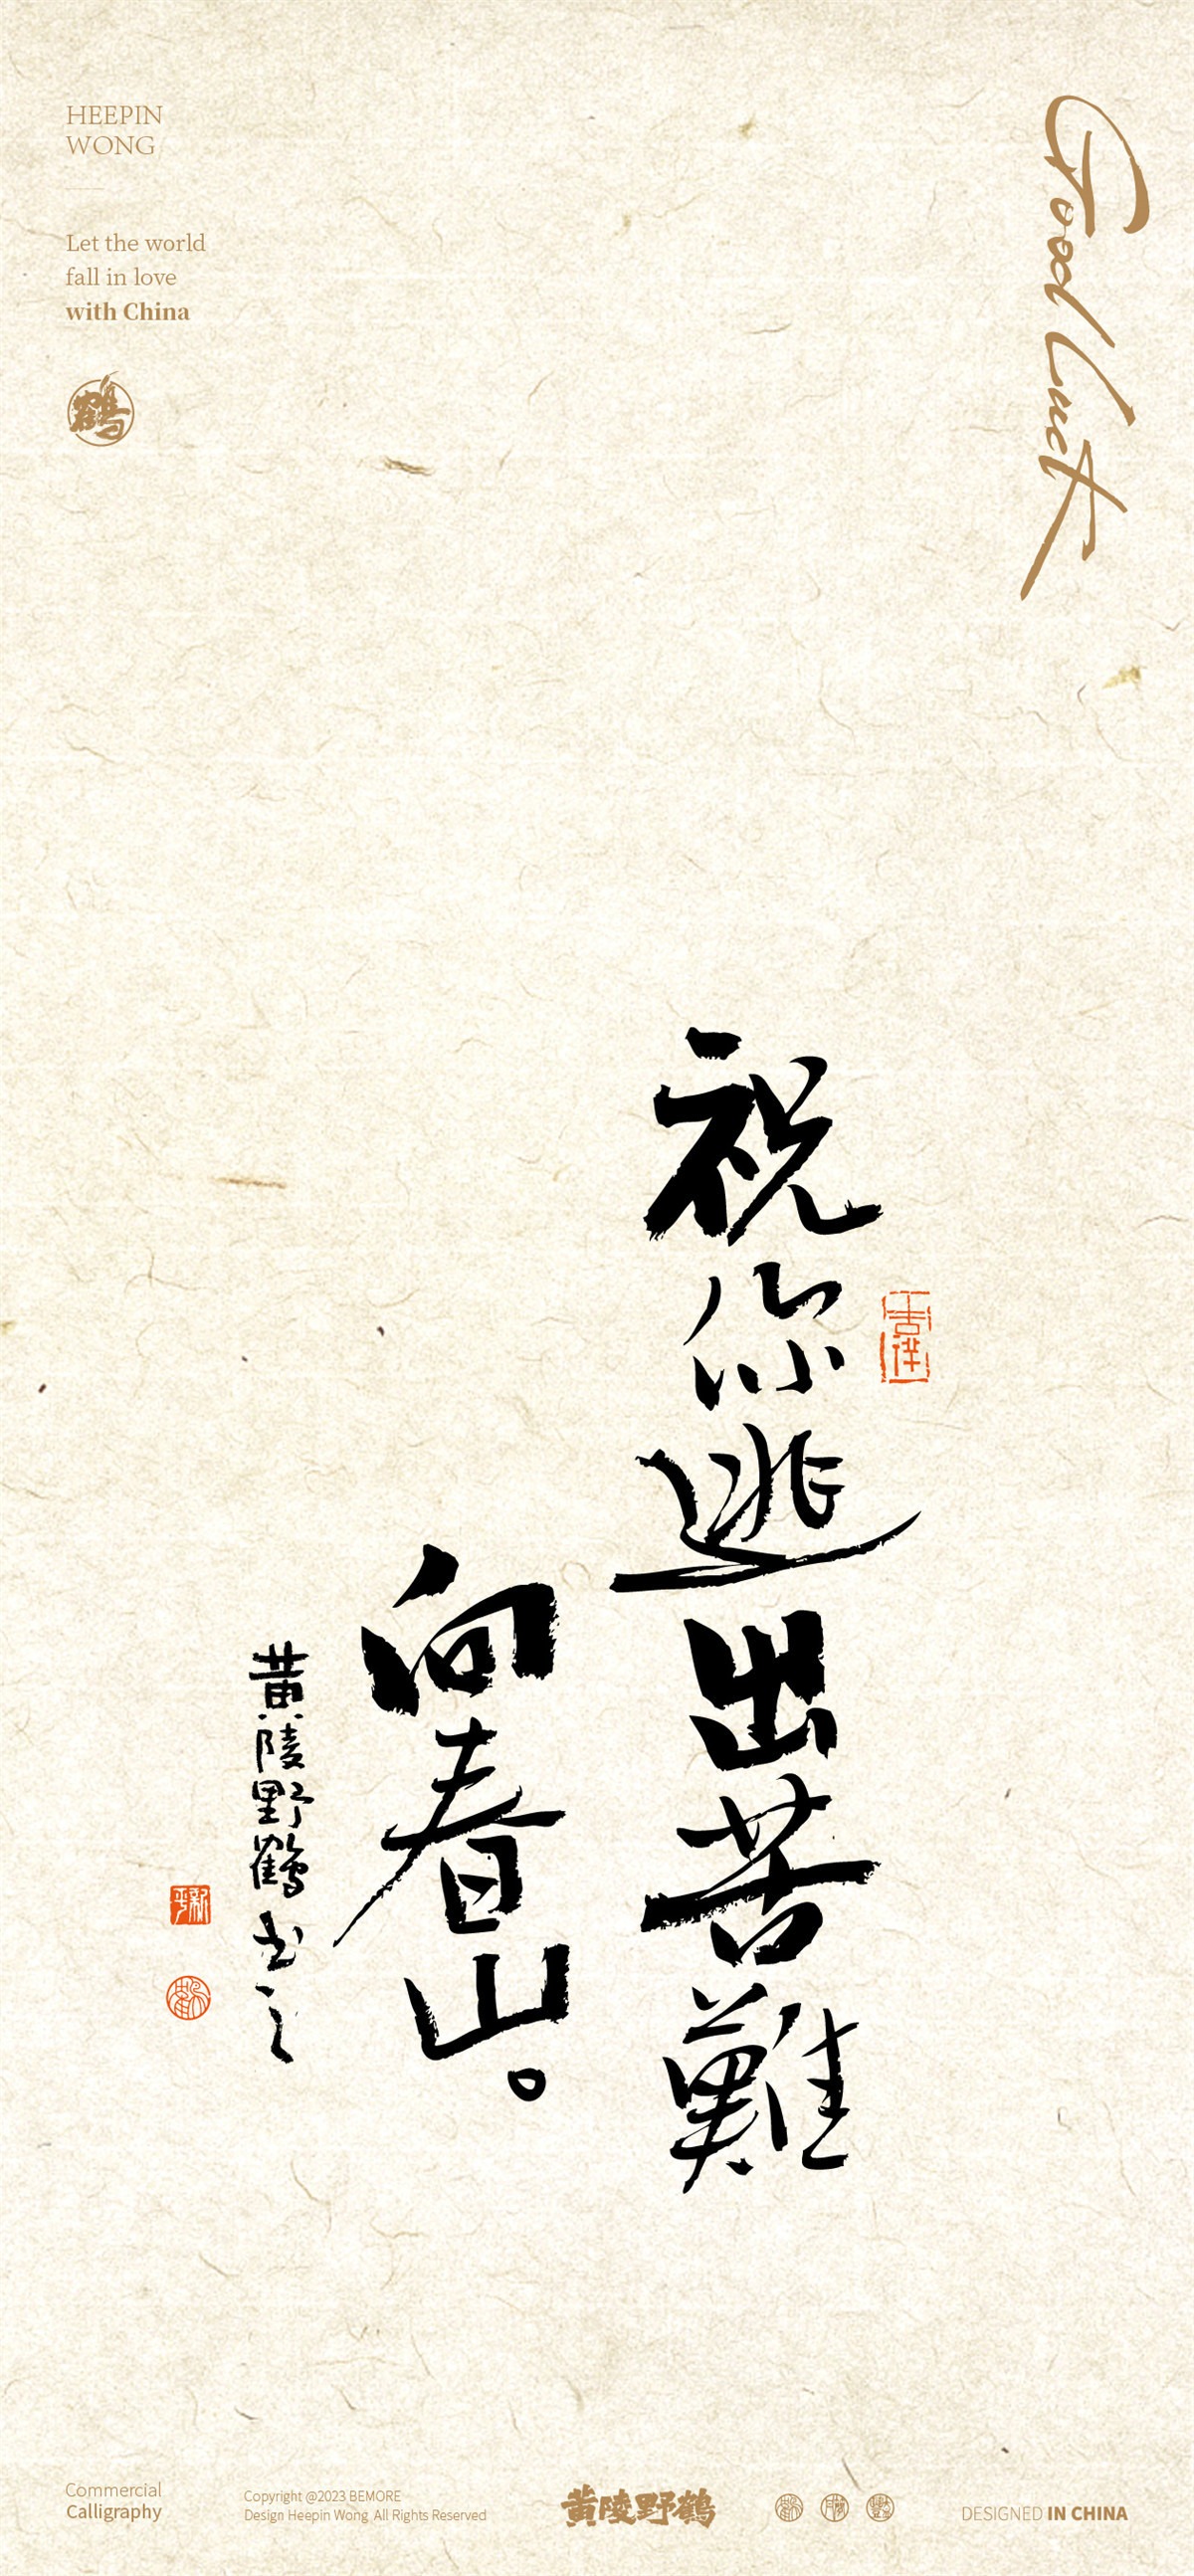 HEEPIN
WONG
Let the world
fall in love
with China
鶴
Good Luck
祝你逃出苦難
向春山。
黄陵野鶴书之
Commercial
Calligraphy
Copyright @2023 BEMORE
Design Heepin Wong All Rights Reserved
黄陵野鶴
DESIGNED IN CHINA